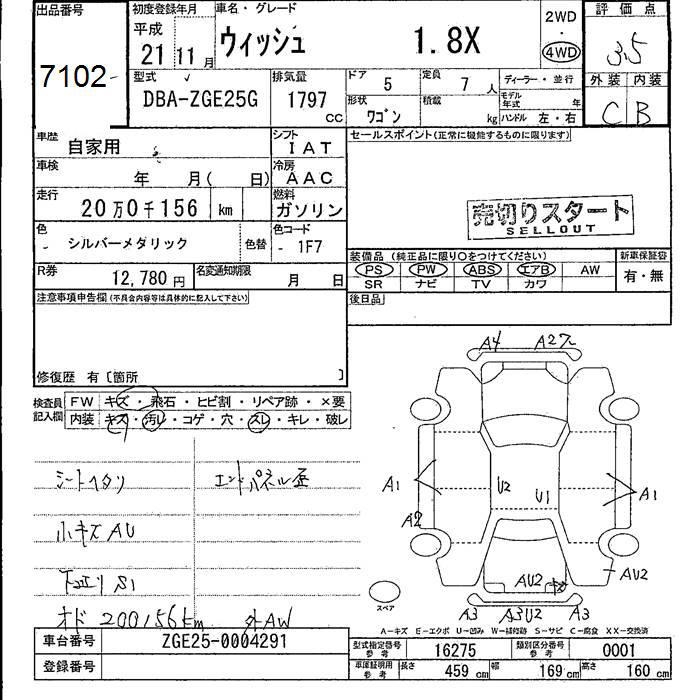 出品番号
7102
初度登録年月
平成
21 11月
車名・グレード
ウィッシュ 1.8X
2WD
・
4WD
評価点
3.5
外装 内装
C B
型式
DBA-ZGE25G
排気量
1797
CC
ドア 5
定員 7人
形状 ワゴン
積載 kg
ディーラー・並行
モデル年式 年
ハンドル 左・右
車歴 自家用
シフト
IAT
車検 年 月( 日)
冷房
AAC
走行
20万0千156 km
燃料
ガソリン
色
シルバーメタリック
色替
色コード
- 1F7
R券
12,780円
名変通知期限
月 日
セールスポイント(正常に機能するものに限ります)
売切りスタート
SELLOUT
装備品(純正品に限り○をつけてください)
PS PW ABS エアB AW
SR ナビ TV カワ
新車保証書
有・無
後日品
注意事項申告欄(不具合内容等は具体的に記入して下さい)
修復歴 有〔箇所 〕
検査員
記入欄
FW キズ・飛石・ヒビ割・リペア跡・×要
内装 キズ・汚レ・コゲ・穴・スレ・キレ・破レ
シートヘタリ
エンドパネル歪
小キズAU
下廻りS1
オド200156km
外AW
A4 A2
A1
A2
U2
U1
A1
AU2
AU2
A3 A3U2 A3
スペア
A-キズ E-エクボ U-凹み W-補修跡 S-サビ C-腐食 XX-交換済
車台番号 ZGE25-0004291
登録番号
型式指定番号
参考
16275
類別区分番号
参考
0001
車庫証明用
参考
長さ 459 cm
幅 169 cm
高さ 160 cm